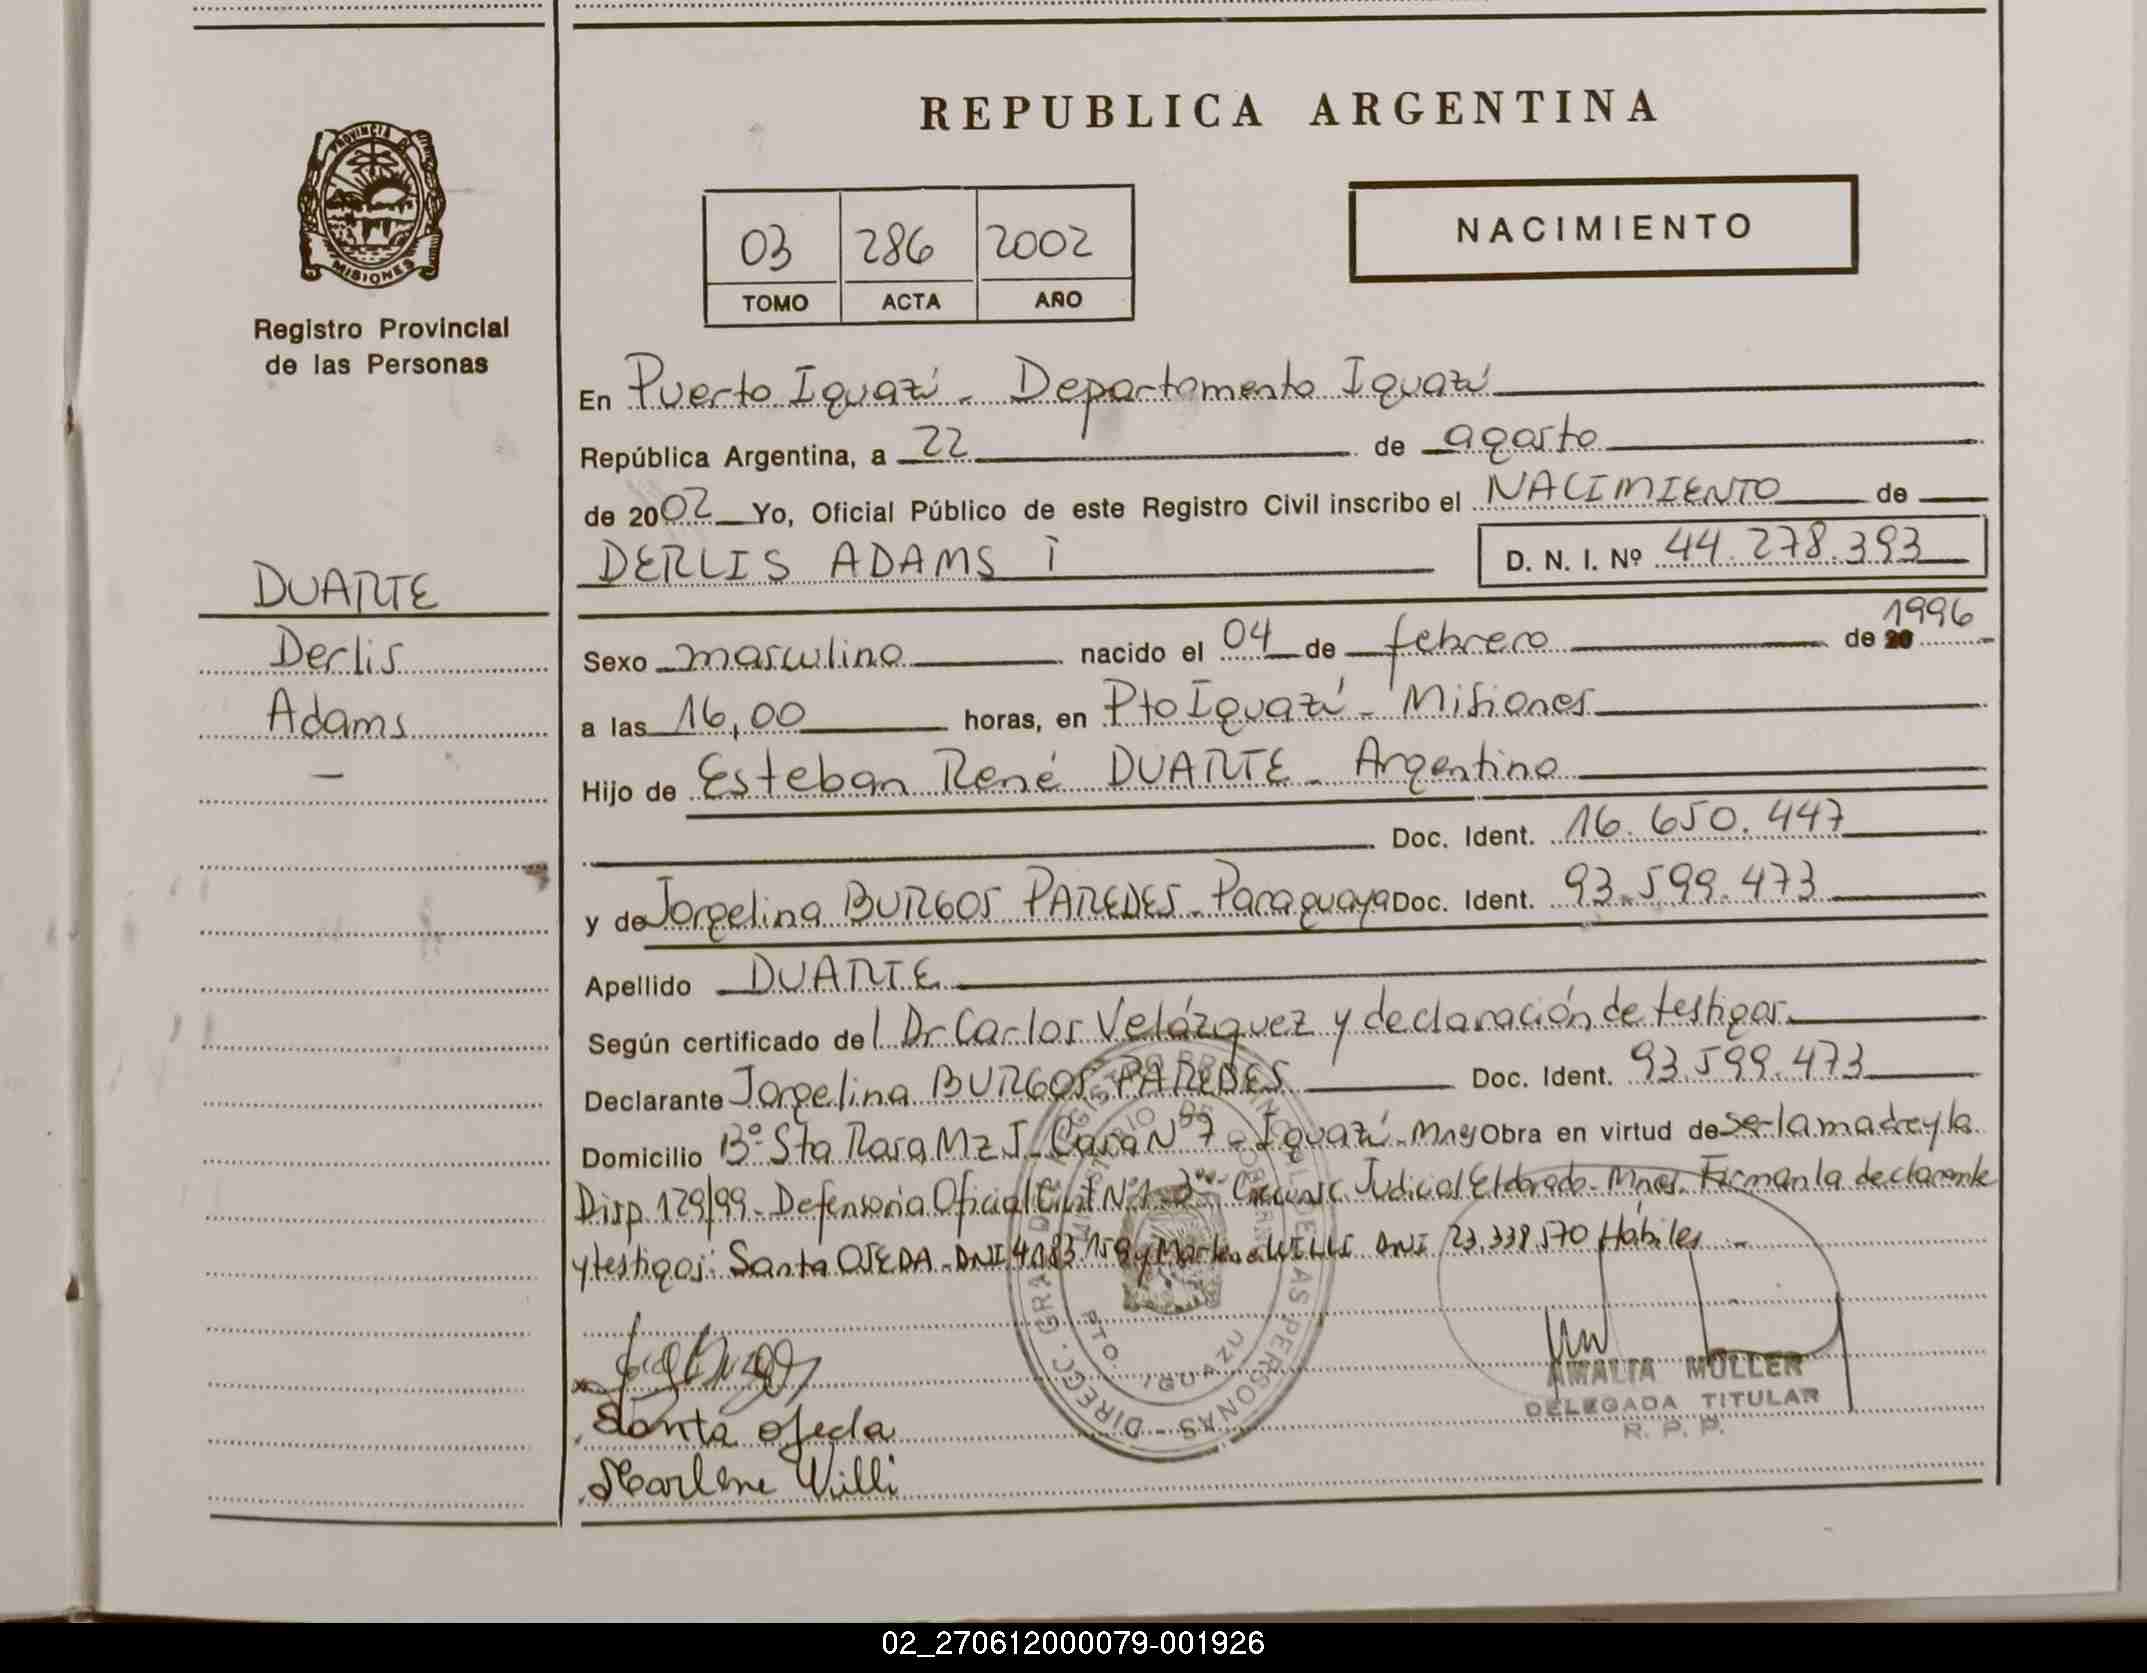 REPUBLICA ARGENTINA
PROVINCIA DE
MISIONES
Registro Provincial
de las Personas
03 286 2002
TOMO ACTA AÑO
NACIMIENTO
En Puerto Iguazú - Departamento Iguazú
República Argentina, a 22 de agosto
de 2002 Yo, Oficial Público de este Registro Civil inscribo el NACIMIENTO de
DERLIS ADAMS
D. N. I. Nº 44.278.393
DUARTE
Derlis
Adams
Sexo masculino nacido el 04 de febrero de 20 1996
a las 16,00 horas, en Pto Iguazú - Misiones
Hijo de Esteban René DUARTE - Argentino
Doc. Ident. 16.650.447
y de Jorgelina BURGOS PAREDES - Paraguaya Doc. Ident. 93.599.473
Apellido DUARTE
Según certificado del Dr Carlos Velázquez y declaración de testigos.
Declarante Jorgelina BURGOS PAREDES Doc. Ident. 93.599.473
Domicilio Bº Sta Rosa Mz J - Casa Nº 7 - Iguazú - Mnes Obra en virtud de ser la madre y la
Disp. 129/99 - Defensoria Oficial Civil Nº 1 - Circunsc. Judicial Eldorado - Mnes. Firman la declarante
y testigos: Santa OJEDA - DNI y Marlene WILLI DNI 23.338.570 Hábiles -
Santa Ojeda
Marlene Willi
DIRECC. GRAL. DEL REGISTRO PROVINCIAL DE LAS PERSONAS
MINISTERIO DE GOBIERNO
PTO. IGUAZU
AMALIA MULLER
DELEGADA TITULAR
R. P. P.
02_270612000079-001926